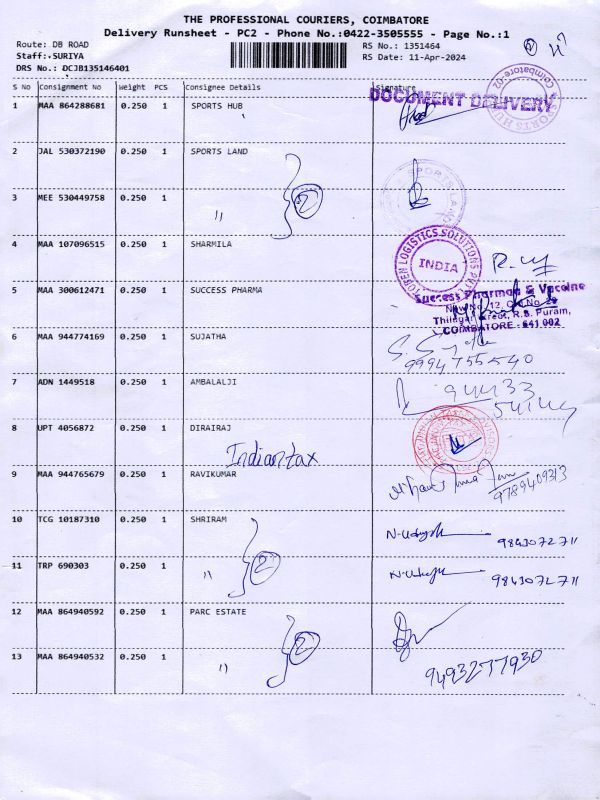 THE PROFESSIONAL COURIERS, COIMBATORE
Delivery Runsheet - PC2 - Phone No.:0422-3505555 - Page No.:1
Route: DB ROAD
RS No.: 1351464
Staff: SURIYA
RS Date: 11-Apr-2024
DRS No.: DCJB135146401
S No Consignment No Weight PCS Consignee Details Signature
1 MAA 864288681 0.250 1 SPORTS HUB
DOCUMENT DELIVERY
Coimbatore-02
SPORTS HUB
2 JAL 530372190 0.250 1 SPORTS LAND
2
3 MEE 530449758 0.250 1 "
SPORTS LAND
4 MAA 107096515 0.250 1 SHARMILA
LOGISTICS SOLUTIONS
INDIA
5 MAA 300612471 0.250 1 SUCCESS PHARMA
Success Pharma & Vaccine
R.S. Puram,
COIMBATORE - 641 002
6 MAA 944774169 0.250 1 SUJATHA
9994755540
7 ADN 1449518 0.250 1 AMBALALJI
8 UPT 4056872 0.250 1 DIRAIRAJ
Indiantax
9 MAA 944765679 0.250 1 RAVIKUMAR
9789409313
10 TCG 10187310 0.250 1 SHRIRAM
9843072711
2
11 TRP 690303 0.250 1 "
9843072711
12 MAA 864940592 0.250 1 PARC ESTATE
2
13 MAA 864940532 0.250 1 "
9493277930